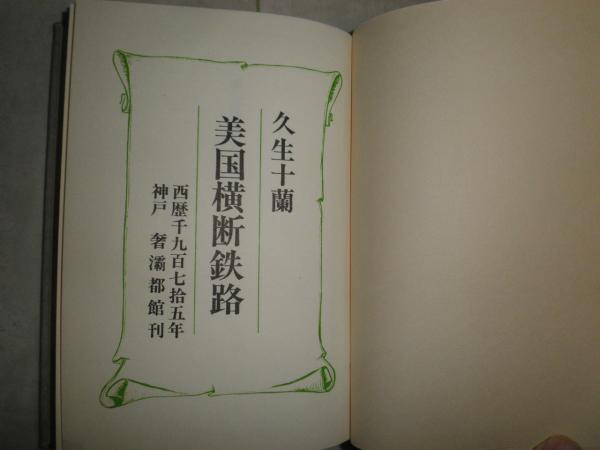 久生十蘭
美国横断鉄路
西歴千九百七拾五年
神戸 奢灞都館刊